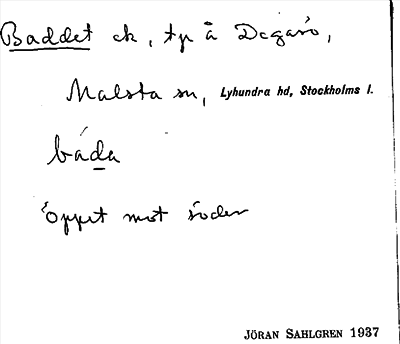 Baddet ek, tp å Degarö,
Malsta sn, Lyhundra hd, Stockholms l.
båda
öppet mot söder
JÖRAN SAHLGREN 1937